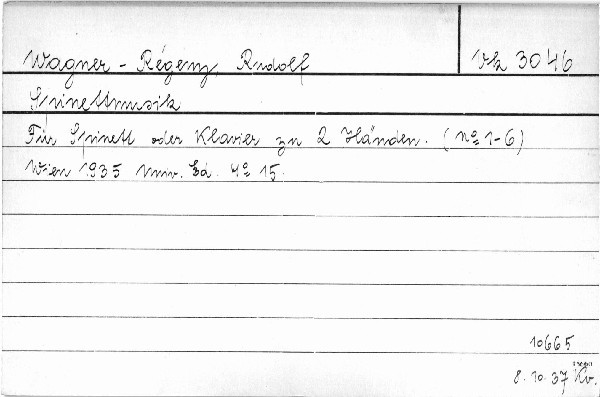 Wagner-Régeny, Rudolf Vk 3046
Spinettmusik
Für Spinett oder Klavier zu 2 Händen. (No 1-6)
Wien 1935 Univ. Ed. 4o 15.
10665
8.10.37 Kv.